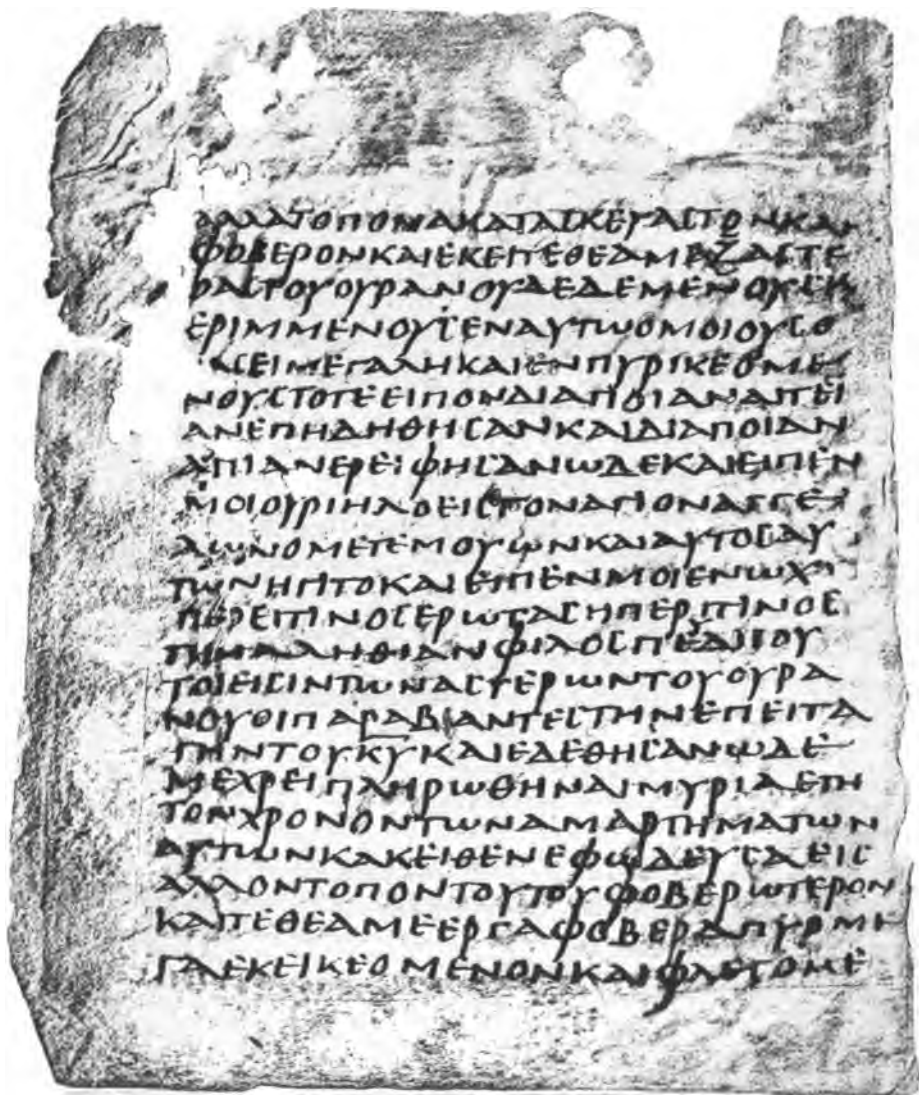 ΑΛΛΑΤΟΠΟΝΑΚΑΤΑΣΚΕΥΑΣΤΟΝΚΑΙ
ΦΟΒΕΡΟΝΚΑΙΕΚΕΙΤΕΘΕΑΜΕΖΑΣΤΕ
ΡΑΣΤΟΥΟΥΡΑΝΟΥΔΕΔΕΜΕΝΟΥΣΚΑΙ
ΕΡΙΜΜΕΝΟΥΣΕΝΑΥΤΩΟΜΟΙΟΥΣΟ
ΣΕΙΜΕΓΑΛΗΚΑΙΕΝΠΥΡΙΚΕΟΜΕ
ΝΟΥΣΤΟΤΕΕΙΠΟΝΔΙΑΠΟΙΑΝΑΙΤΕΙ
ΑΝΕΠΗΔΗΘΗΣΑΝΚΑΙΔΙΑΠΟΙΑΝ
ΑΙΤΙΑΝΕΡΕΙΦΗΣΑΝΩΔΕΚΑΙΕΙΠΕΝ
ΜΟΙΟΥΡΙΗΛΟΕΙΣΤΟΝΑΓΙΟΝΑΓΓΕ
ΛΩΝΟΜΕΤΕΜΟΥΩΝΚΑΙΑΥΤΟΣΑΥ
ΤΩΝΗΓΙΤΟΚΑΙΕΙΠΕΝΜΟΙΕΝΩΧ
ΠΕΡΕΙΤΙΝΟΣΕΡΩΤΑΣΗΠΕΡΙΤΙΝΟΣ
ΤΗΝΑΛΗΘΙΑΝΦΙΛΟΣΠΕΥΔΙΣΟΥ
ΤΟΙΕΙΣΙΝΤΩΝΑΣΤΕΡΩΝΤΟΥΟΥΡΑ
ΝΟΥΟΙΠΑΡΑΒΑΝΤΕΣΤΗΝΕΠΕΙΤΑ
ΓΗΝΤΟΥΚΥΚΑΙΕΔΕΘΗΣΑΝΩΔΕ
ΜΕΧΡΕΙΠΛΗΡΩΘΗΝΑΙΜΥΡΙΑΕΤΗ
ΤΟΝΧΡΟΝΟΝΤΩΝΑΜΑΡΤΗΜΑΤΩΝ
ΑΥΤΩΝΚΑΚΕΙΘΕΝΕΦΩΔΕΥΣΑΕΙΣ
ΑΛΛΟΝΤΟΠΟΝΤΟΥΤΟΥΦΟΒΕΡΩΤΕΡΟΝ
ΚΑΙΤΕΘΕΑΜΕΕΡΓΑΦΟΒΕΡΑΠΥΡΜΕ
ΓΑΕΚΕΙΚΕΟΜΕΝΟΝΚΑΙΦΛΕΓΟΜΕ